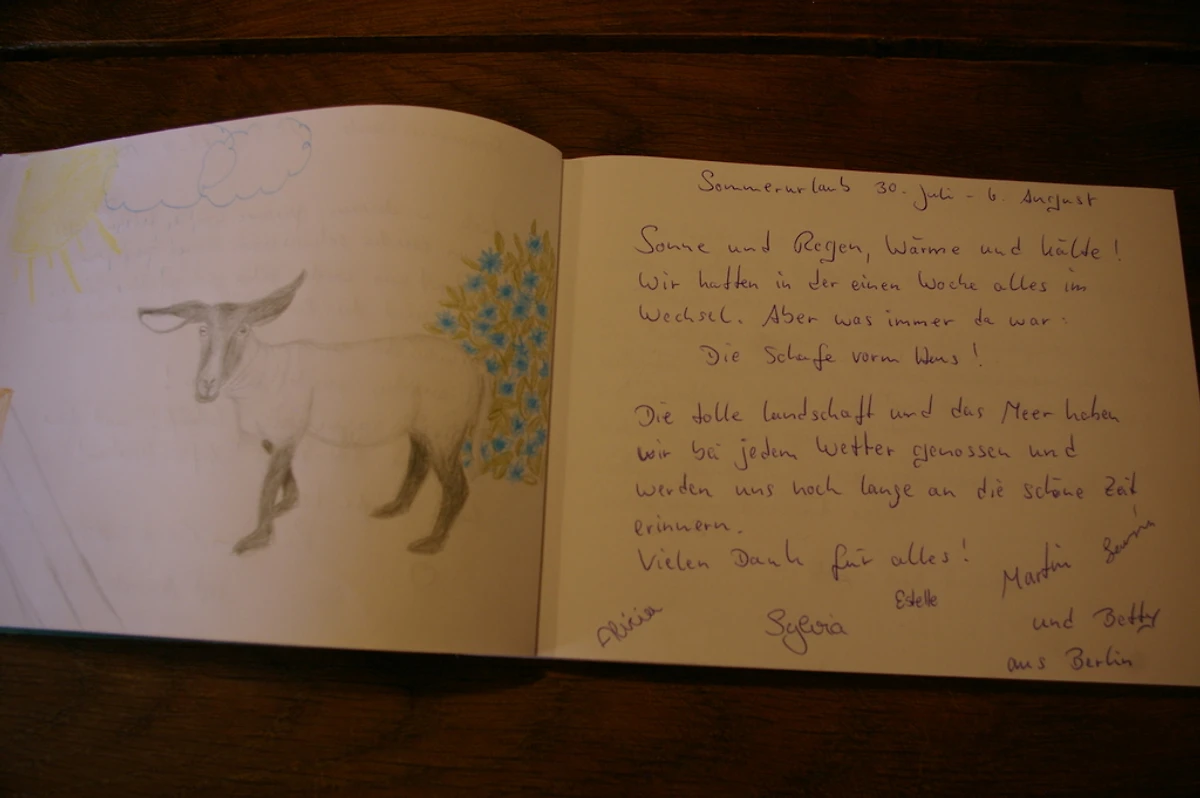 Sommerurlaub 30. Juli - 6. August
Sonne und Regen, Wärme und Kälte!
Wir hatten in der einen Woche alles im
Wechsel. Aber was immer da war:
Die Schafe vorm Haus!
Die tolle Landschaft und das Meer haben
wir bei jedem Wetter genossen und
werden uns noch lange an die schöne Zeit
erinnern.
Vielen Dank für alles!
Estelle
Martin
Sylvia
und Betty
aus Berlin